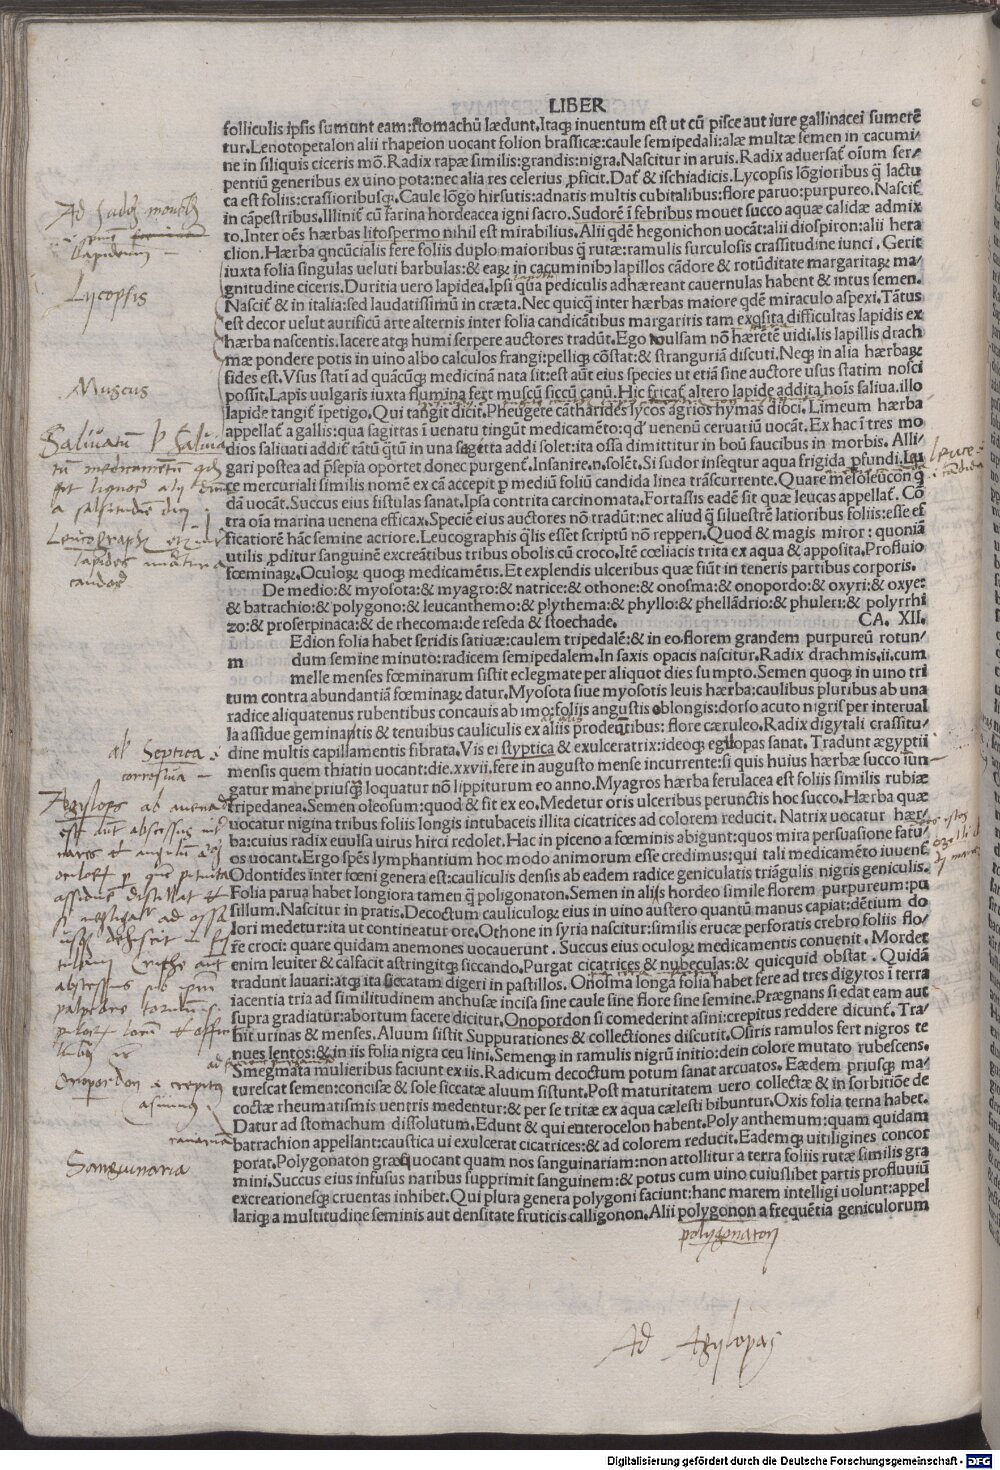 LIBER
folliculis ipsis sumunt eam:stomachũ lædunt.Itaqꝫ inuentum est ut cũ pisce aut iure gallinacei sumerẽ
tur.Lenotopetalon alii rhapeion uocant folion brassicæ:caule semipedali:alæ multæ semen in cacumi/
ne in siliquis ciceris mõ.Radix rapæ similis:grandis:nigra.Nascitur in aruis.Radix aduersat̃ oĩum ser/
pentiũ generibus ex uino pota:nec alia res celerius ꝓficit.Dat̃ & ischiadicis.Lycopsis lõgioribus q̃ lactu
ca est foliis:crassioribusqꝫ.Caule lõgo hirsutis:adnatis multis cubitalibus:flore paruo:purpureo.Nascit̃
in cãpestribus.Illinit̃ cũ farina hordeacea igni sacro.Sudorẽ ĩ febribus mouet succo aquæ calidæ admix
to.Inter oẽs hærbas litospermo nihil est mirabilius.Alii qdẽ hegonichon uocãt:alii diospiron:alii hera
clion.Hærba qncũcialis fere foliis duplo maioribus q̃ rutæ:ramulis surculosis crassitudine iunci.Gerit
iuxta folia singulas ueluti barbulas:& eaꝝ in cacuminibꝰ lapillos cãdore & rotũditate margaritaꝝ ma/
gnitudine ciceris.Duritia uero lapidea.Ipsi qua pediculis adhæreant cauernulas habent & intus semen.
Nascit̃ & in italia:sed laudatissimũ in cræta.Nec quicq̃ inter hærbas maiore qdẽ miraculo aspexi.Tãtus
est decor uelut aurificũ arte alternis inter folia candicãtibus margariris tam exqsita difficultas lapidis ex
hærba nascentis.Iacere atqꝫ humi serpere auctores tradũt.Ego uulsam nõ hærẽtẽ uidi.Iis lapillis drach
mæ pondere potis in uino albo calculos frangi:pelliqꝫ cõstat:& stranguriã discuti.Neqꝫ in alia hærbaꝝ
fides est.Vsus statĩ ad quãcũqꝫ medicinã nata sit:est aũt eius species ut etiã sine auctore usus statim nosci
possit.Lapis uulgaris iuxta flumina fert muscũ siccũ canũ.Hic fricat̃ altero lapide addita hoĩs saliua.illo
lapide tangit̃ ĩpetigo.Qui tangit dicit.Pheugete cãtharides lycos agrios hymas dioci.Limeum hærba
appellat̃ a gallis:qua sagittas ĩ uenatu tingũt medicamẽto:qd' uenenũ ceruariũ uocãt.Ex hac ĩ tres mo
dios saliuati addit̃ tãtũ q̃tũ in una sagitta addi solet:ita offa dimittitur in boũ faucibus in morbis.Alli/
gari postea ad p̃sepia oportet donec purgent̃.Insanire.n.solẽt.Si sudor inseqtur aqua frigida ꝓfundi.Leu
ce mercuriali similis nomẽ ex cã accepit ꝑ mediũ foliũ candida linea trãscurrente.Quare mesoleucon q
dã uocãt.Succus eius fistulas sanat.Ipsa contrita carcinomata.Fortassis eadẽ sit quæ leucas appellat̃.Cõ
tra oĩa marina uenena efficax.Speciẽ eius auctores nõ tradũt:nec aliud q̃ siluestrẽ latioribus foliis:esse ef
ficatiorẽ hãc semine acriore.Leucographis q̃lis esset scriptũ nõ repperi.Quod & magis miror: quoniã
utilis ꝓditur sanguinẽ excreãtibus tribus obolis cũ croco.Itẽ cœliacis trita ex aqua & apposita.Profluio
fœminaꝝ.Oculoꝝ quoqꝫ medicamẽtis.Et explendis ulceribus quæ fiũt in teneris partibus corporis.
De medio:& myosota:& myagro:& natrice:& othone:& onosma:& onopordo:& oxyri:& oxye:
& batrachio:& polygono:& leucanthemo:& plythema:& phyllo:& phellãdrio:& phuleri:& polyrrhi
zo:& proserpinaca:& de rhecoma:de reseda & stoechade. CA. XII.
Edion folia habet seridis satiuæ:caulem tripedalẽ:& in eo.florem grandem purpureũ rotun/
m dum semine minuto:radicem semipedalem.In saxis opacis nascitur.Radix drachmis.ii.cum
melle menses fœminarum sistit eclegmate per aliquot dies sumpto.Semen quoqꝫ in uino tri
tum contra abundantiã fœminaꝝ datur.Myosota siue myosotis leuis hærba:caulibus pluribus ab una
radice aliquatenus rubentibus concauis ab imo:foliis angustis oblongis:dorso acuto nigris per interual
la assidue geminatis & tenuibus cauliculis ex aliis prodeũtibus: flore cæruleo.Radix digytali crassitu/
dine multis capillamentis fibrata.Vis ei styptica & exulceratrix:ideoqꝫ egilopas sanat. Tradunt ægyptii
mensis quem thiatin uocant:die.xxvii.fere in augusto mense incurrente:si quis huius hærbæ succo iun
gatur mane priusqꝫ loquatur nõ lippiturum eo anno.Myagros hærba ferulacea est foliis similis rubiæ
tripedanea.Semen oleosum:quod & fit ex eo.Medetur oris ulceribus perunctis hoc succo.Hærba quæ
uocatur nigina tribus foliis longis intubaceis illita cicatrices ad colorem reducit. Natrix uocatur hær/
ba:cuius radix euulsa uirus hirci redolet.Hac in piceno a fœminis abigunt:quos mira persuasione fatu/
os uocant.Ergo spẽs lymphantium hoc modo animorum esse credimus:qui tali medicamẽto iuuent̃
Odontides inter fœni genera est:cauliculis densis ab eadem radice geniculatis triãgulis nigris geniculis.
Folia parua habet longiora tamen q̃ poligonaton.Semen in aliis hordeo simile florem purpureum:pu
sillum.Nascitur in pratis.Decoctum cauliculoꝝ eius in uino austero quantũ manus capiat:dẽtium do
lori medetur:ita ut contineatur ore.Othone in syria nascitur:similis erucæ perforatis crebro foliis flo/
re croci: quare quidam anemones uocauerunt . Succus eius oculoꝝ medicamentis conuenit . Mordet
enim leuiter & calfacit astringitqꝫ siccando.Purgat cicatrices & nubeculas:& quicquid obstat . Quidã
tradunt lauari:atqꝫ ita siccatam digeri in pastillos. Onosma longa folia habet fere ad tres digytos ĩ terra
iacentia tria ad similitudinem anchusæ incisa sine caule sine flore sine semine.Prægnans si edat eam aut
supra gradiatur:abortum facere dicitur.Onopordon si comederint asini:crepitus reddere dicunt̃. Tra/
hit urinas & menses.Aluum sistit Suppurationes & collectiones discutit.Osiris ramulos fert nigros te
nues lentos:& in iis folia nigra ceu lini.Semenqꝫ in ramulis nigrũ initio:dein colore mutato rubescens.
Smegmata mulieribus faciunt ex iis.Radicum decoctum potum sanat arcuatos. Eædem priusqꝫ ma/
turescat semen:concisæ & sole siccatæ aluum sistunt.Post maturitatem uero collectæ & in sorbitiõe de
coctæ rheumatismis uentris medentur:& per se tritæ ex aqua cælesti bibuntur.Oxis folia terna habet.
Datur ad stomachum dissolutum.Edunt & qui enterocelon habent.Poly anthemum:quam quidam
batrachion appellant:caustica ui exulcerat cicatrices:& ad colorem reducit.Eademqꝫ uitiligines concor
porat.Polygonaton græci uocant quam nos sanguinariam:non attollitur a terra foliis rutæ similis gra
mini.Succus eius infusus naribus supprimit sanguinem:& potus cum uino cuiuslibet partis profluuiũ
excreationesqꝫ cruentas inhibet.Qui plura genera polygoni faciunt:hanc marem intelligi uolunt:appel
lariqꝫ a multitudine seminis aut densitate fruticis calligonon.Alii polygonon a frequẽtia geniculorum
Lycopsis
Muscus
ab Septica
Onopordon a crepitu
asinino
Sanguinaria
polygonaton
Ad Ægylopas
Digitalisierung gefördert durch die Deutsche Forschungsgemeinschaft - DFG